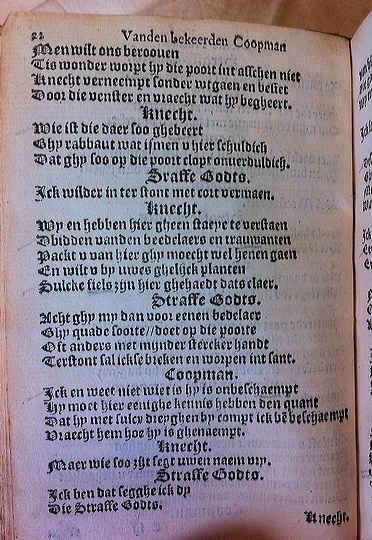 22 Vanden bekeerden Coopman
Men wilt ons berooven
Tis wonder worpt hy die poort int asschen niet
Knecht verneempt sonder wtgaen en besiet
Door die venster en vraecht wat hy begheert.
Knecht.
Wie ist die daer soo ghebeert
Ghy rabbaut wat ismen v hier schuldich
Dat ghy soo op die poort clopt onverduldich.
Straffe Godts.
Ick wilder in ter stont met cort vermaen.
Knecht.
Wy en hebben hier gheen staeye te verstaen
Dbidden vanden beedelaers en trauwanten
Packt v van hier ghy moecht wel henen gaen
En wilt v by uwes ghelijck planten
Sulcke fiels zijn hier ghehaedt dats claer.
Straffe Godts.
Acht ghy my dan voor eenen bedelaer
Ghy quade soorte//doet op die poorte
Oft anders met mijnder stercker handt
Terstont sal ickse breken en worpen int sant.
Coopman.
Ick en weet niet wiet is hy is onbeschaempt
Hy moet hier eenighe kennis hebben den quant
Dat hy met sulcx dreyghen by compt ick bē beschaempt
Vraecht hem hoe hy is ghenaempt.
Knecht.
Maer wie soo zijt segt uwen naem vry.
Straffe Godts.
Ick ben dat segghe ick dy
Die Straffe Godts.
Knecht.